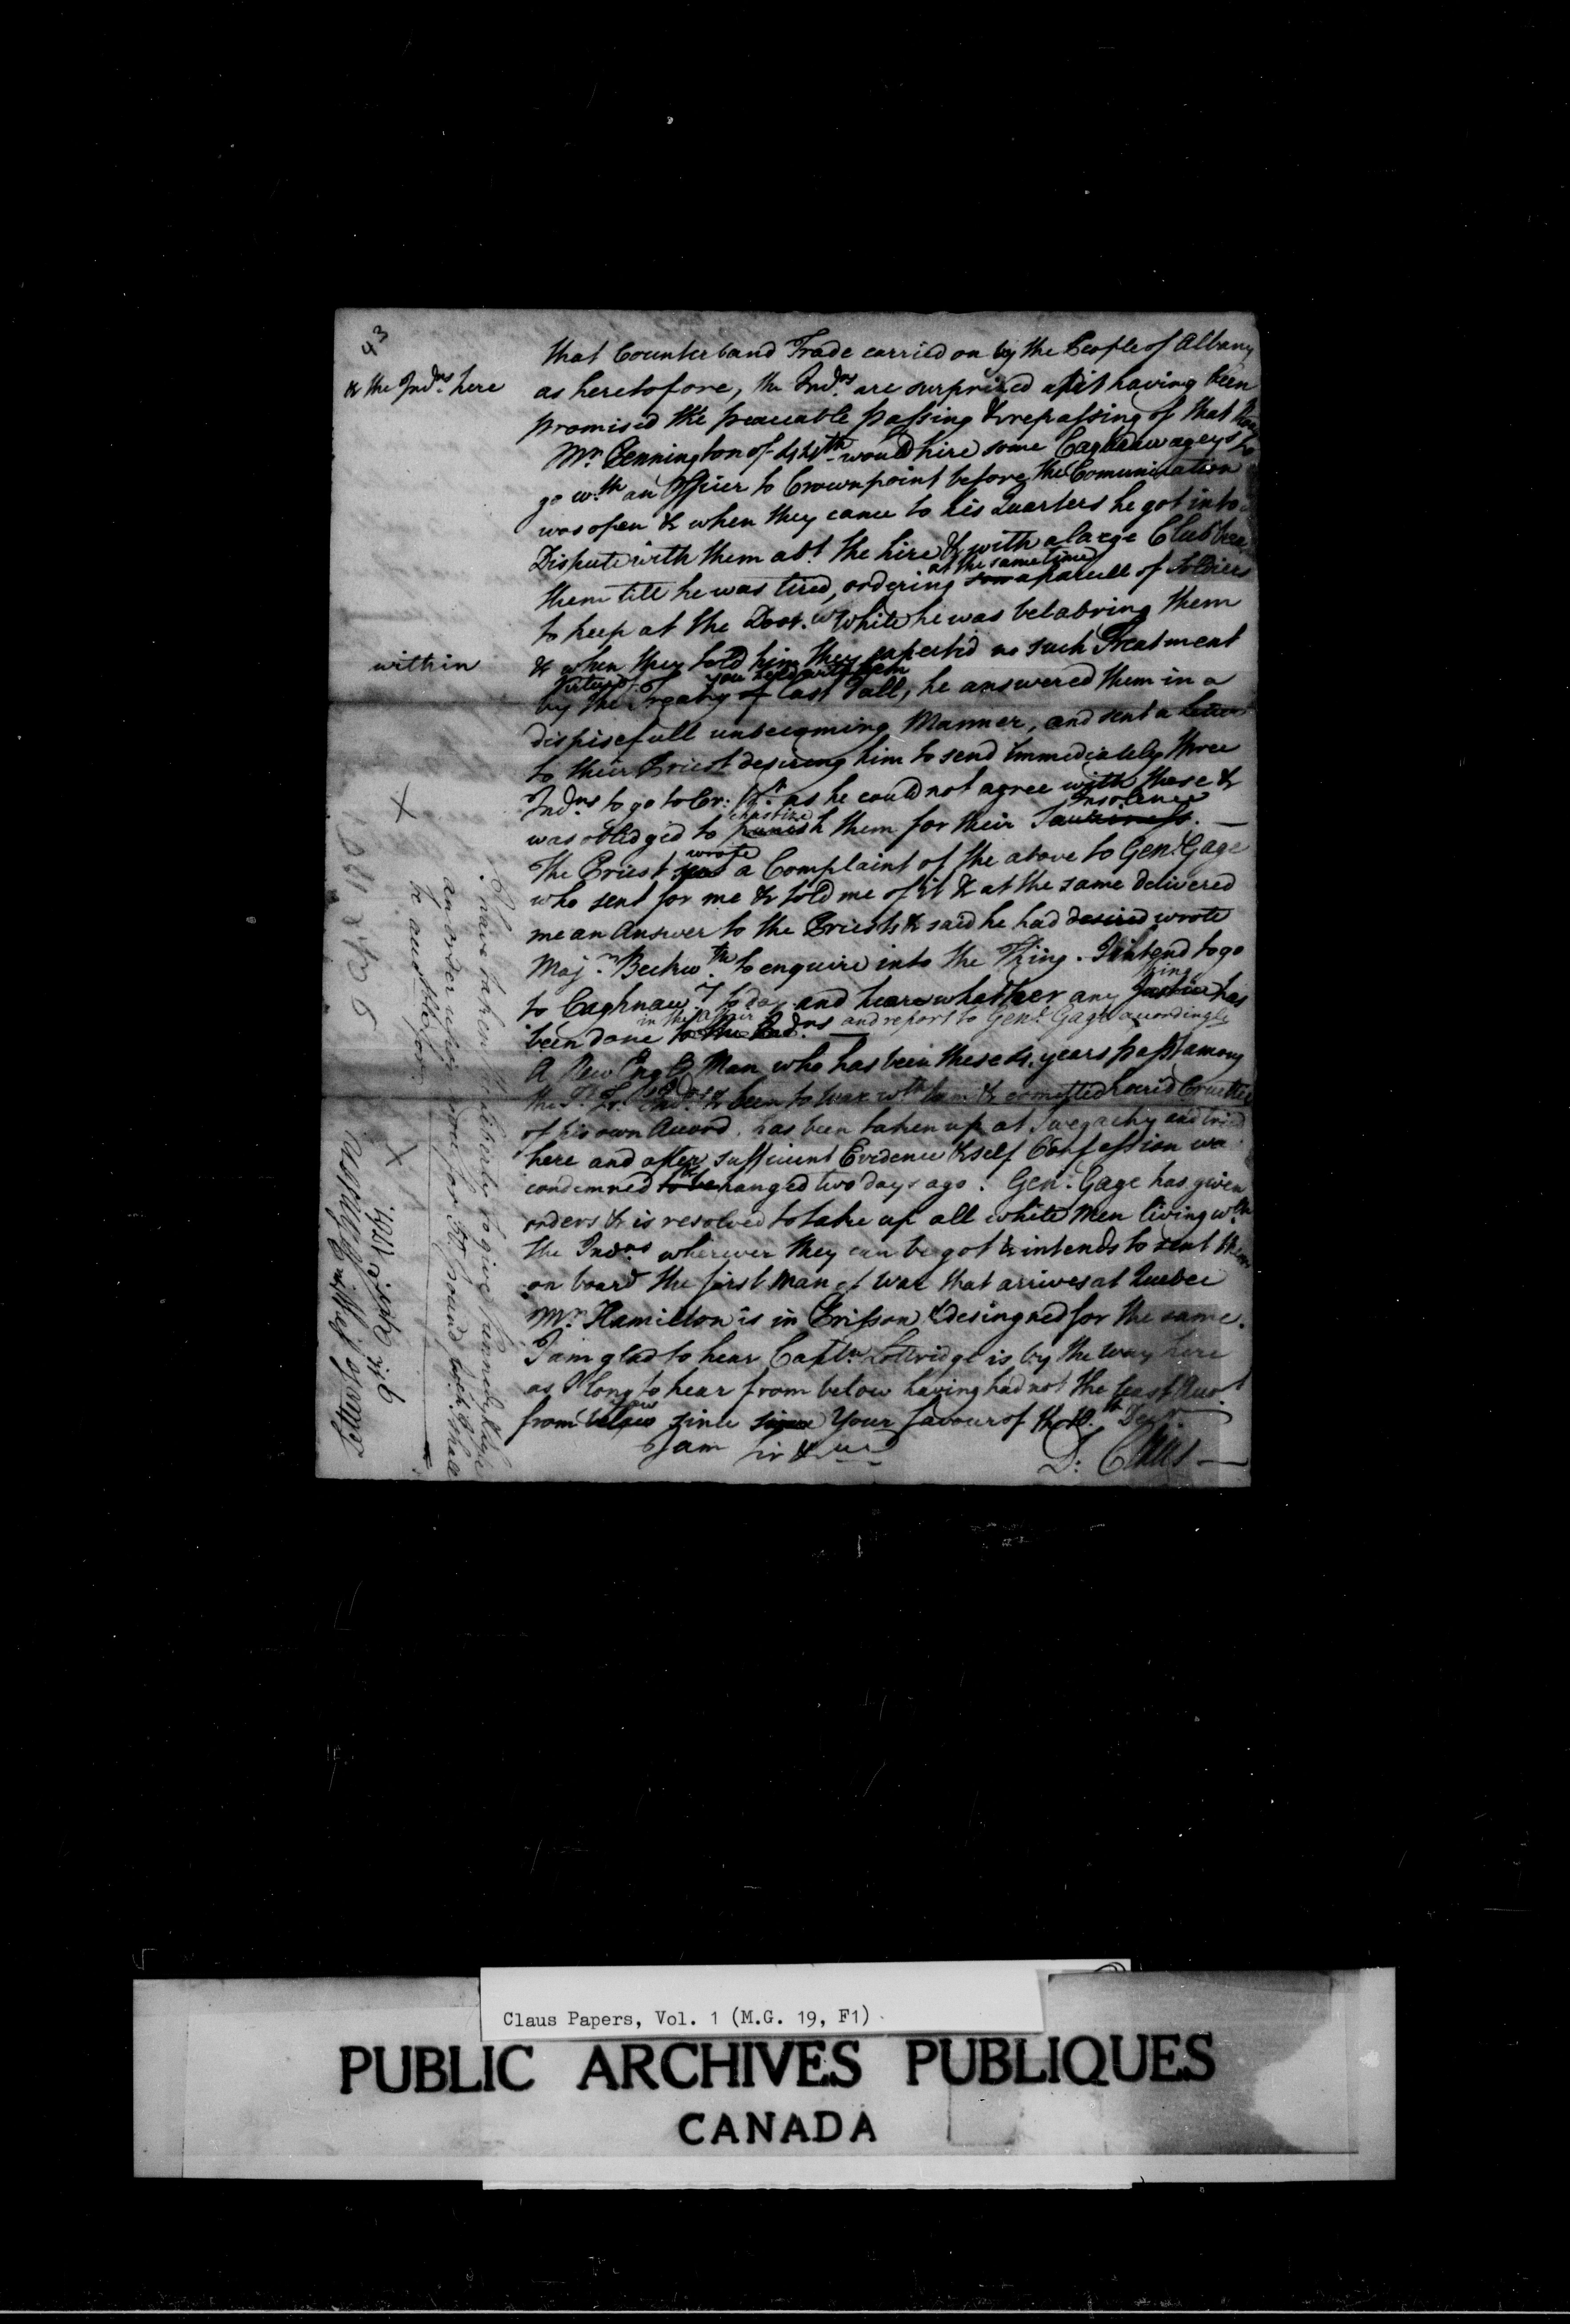 43
& the Ind.ns here
that Counterband Trade carried on by the People of Albany
as heretofore, the Ind.ns are surprized at it having been
promised the peaceable passing & repassing of that
Mr. Pennington of 44th would hire some Caghnawageys to
go w.th an Officer to Crownpoint before the Comunication
was open & when they came to his Quarters he got into a
Dispute with them ab.t the hire & with a large Club
at the same time
them till he was tired, ordering som a parcell of Soldiers
to keep at the Door. while he was belabring them
within
& when they told him they expected no such Treatment
Virtue of you held with them
by the Treaty of last Fall, he answered them in a
dispisefull unbecoming Manner, and sent a letter
to their Priest desireing him to send immediately three
Ind.ns to go to Cr: P.t as he could not agree with these &
chastize Insolence
was obliged to punish them for their Sauciness. —
wrote
The Priest sent a Complaint of the above to Gen.l Gage
who sent for me & told me of it & at the same delivered
me an Answer to the Priests & said he had desired wrote
Maj.r Beckw.th to enquire into the Thing. I intend to go
thing
to Caghnaw.y to day and hear whether any Justice has
in the Affair and report to Gen.l Gage accordingly
been done to the Ind.ns —
A New Engl.d Man who has been these 4 years past among
the Ind.ns & been to War w.th them & comitted horrid Cruelties
of his own Accord, has been taken up at Swegachy and tried
here and after sufficient Evidence & self Confession was
condemned to be hanged two days ago. Gen.l Gage has given
orders & is resolved to take up all white Men living w.th
the Ind.ns wherever they can be got & intends to sent them
on board the first Man of War that arrives at Quebec
Mr. Hamilton is in Prisson & desingned for the same.
I am glad to hear Capt.n Lottridge is by the way here
as I long to hear from below having had not the least
you
from below since Your favour of the Dec.r
I am Sir &
D: Claus —
X
I have taken the liberty to give
an order upon you for
to
X
Letter to Sr. Wm. Johnson
9th April 1761.
9 Apl 1761
Claus Papers, Vol. 1 (M.G. 19, F1)
PUBLIC ARCHIVES PUBLIQUES
CANADA